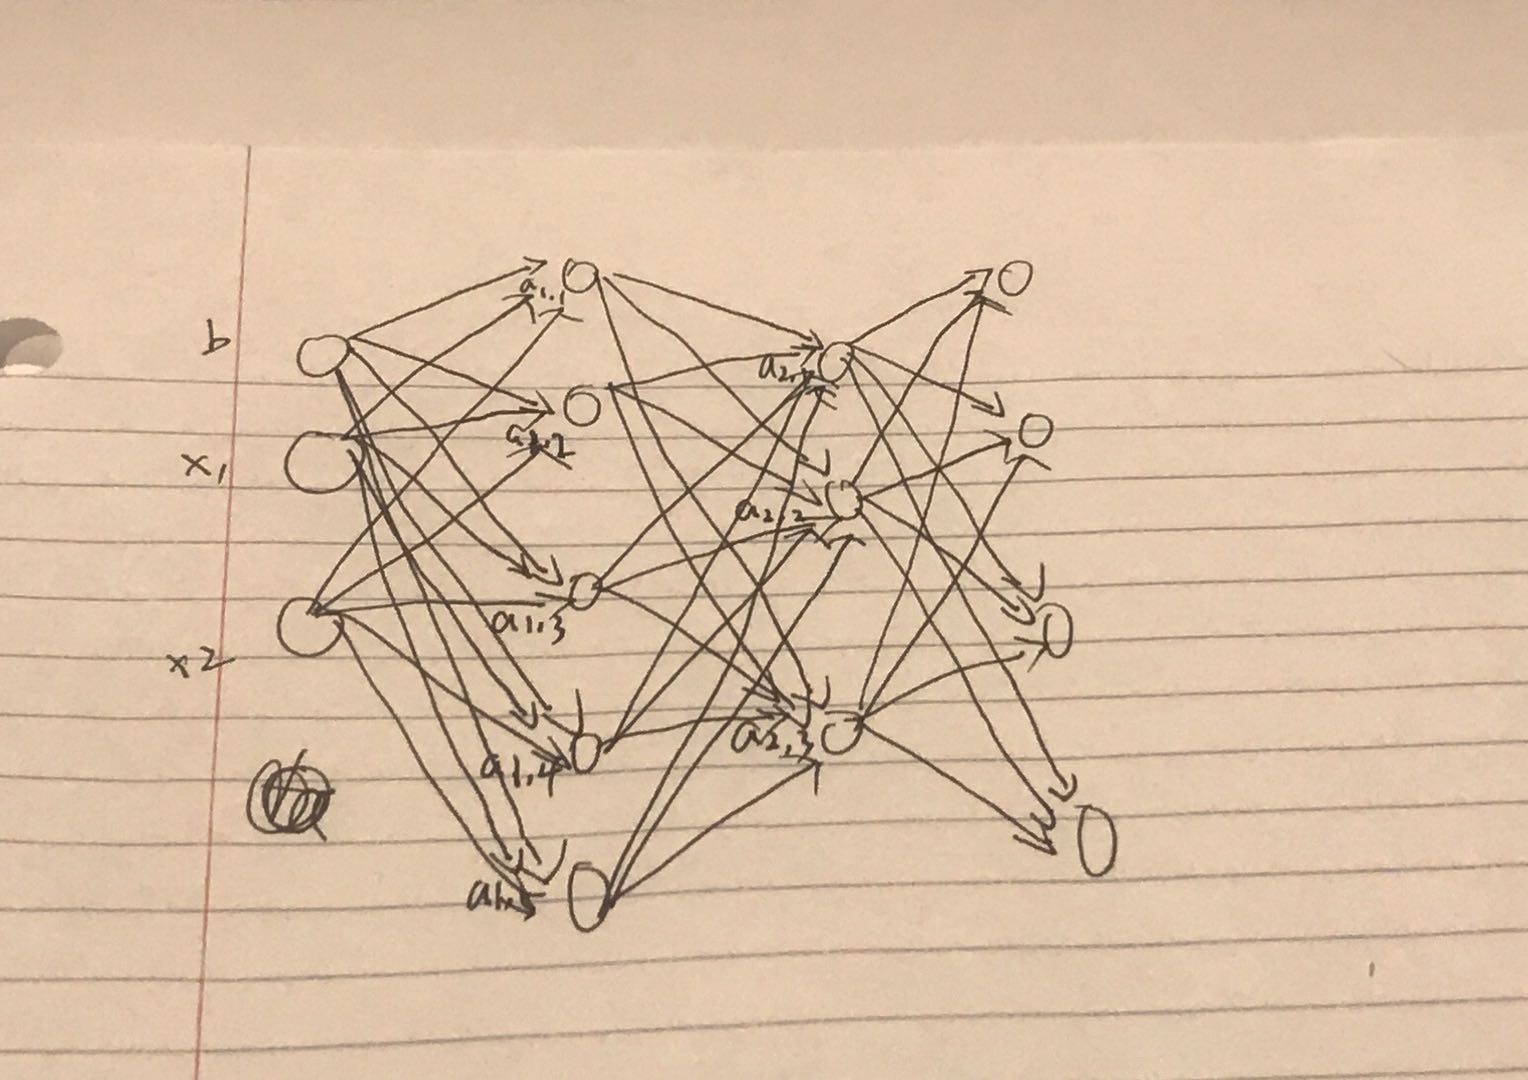 b
x1
x2
a1,1
a1,2
a1,3
a1,4
a1,5
a2,1
a2,2
a2,3